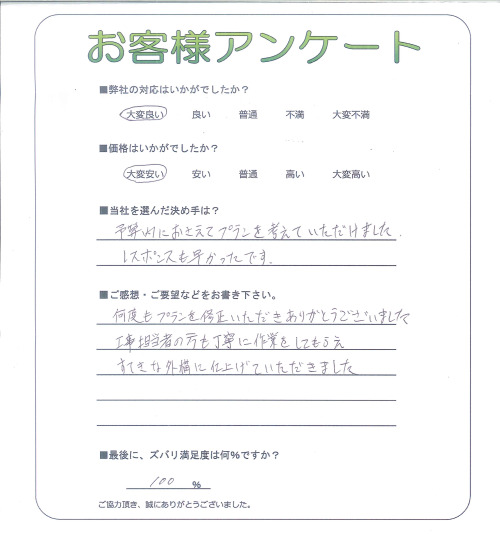 お客様アンケート
■弊社の対応はいかがでしたか？
大変良い 良い 普通 不満 大変不満
■価格はいかがでしたか？
大変安い 安い 普通 高い 大変高い
■当社を選んだ決め手は？
予算内におさえてプランを考えていただけました.
レスポンスも早かったです.
■ご感想・ご要望などをお書き下さい。
何度もプランを修正いただきありがとうございました
工事担当者の方も丁寧に作業をしてもらえ
すてきな外構に仕上げていただきました
■最後に、ズバリ満足度は何％ですか？
100 %
ご協力頂き、誠にありがとうございました。